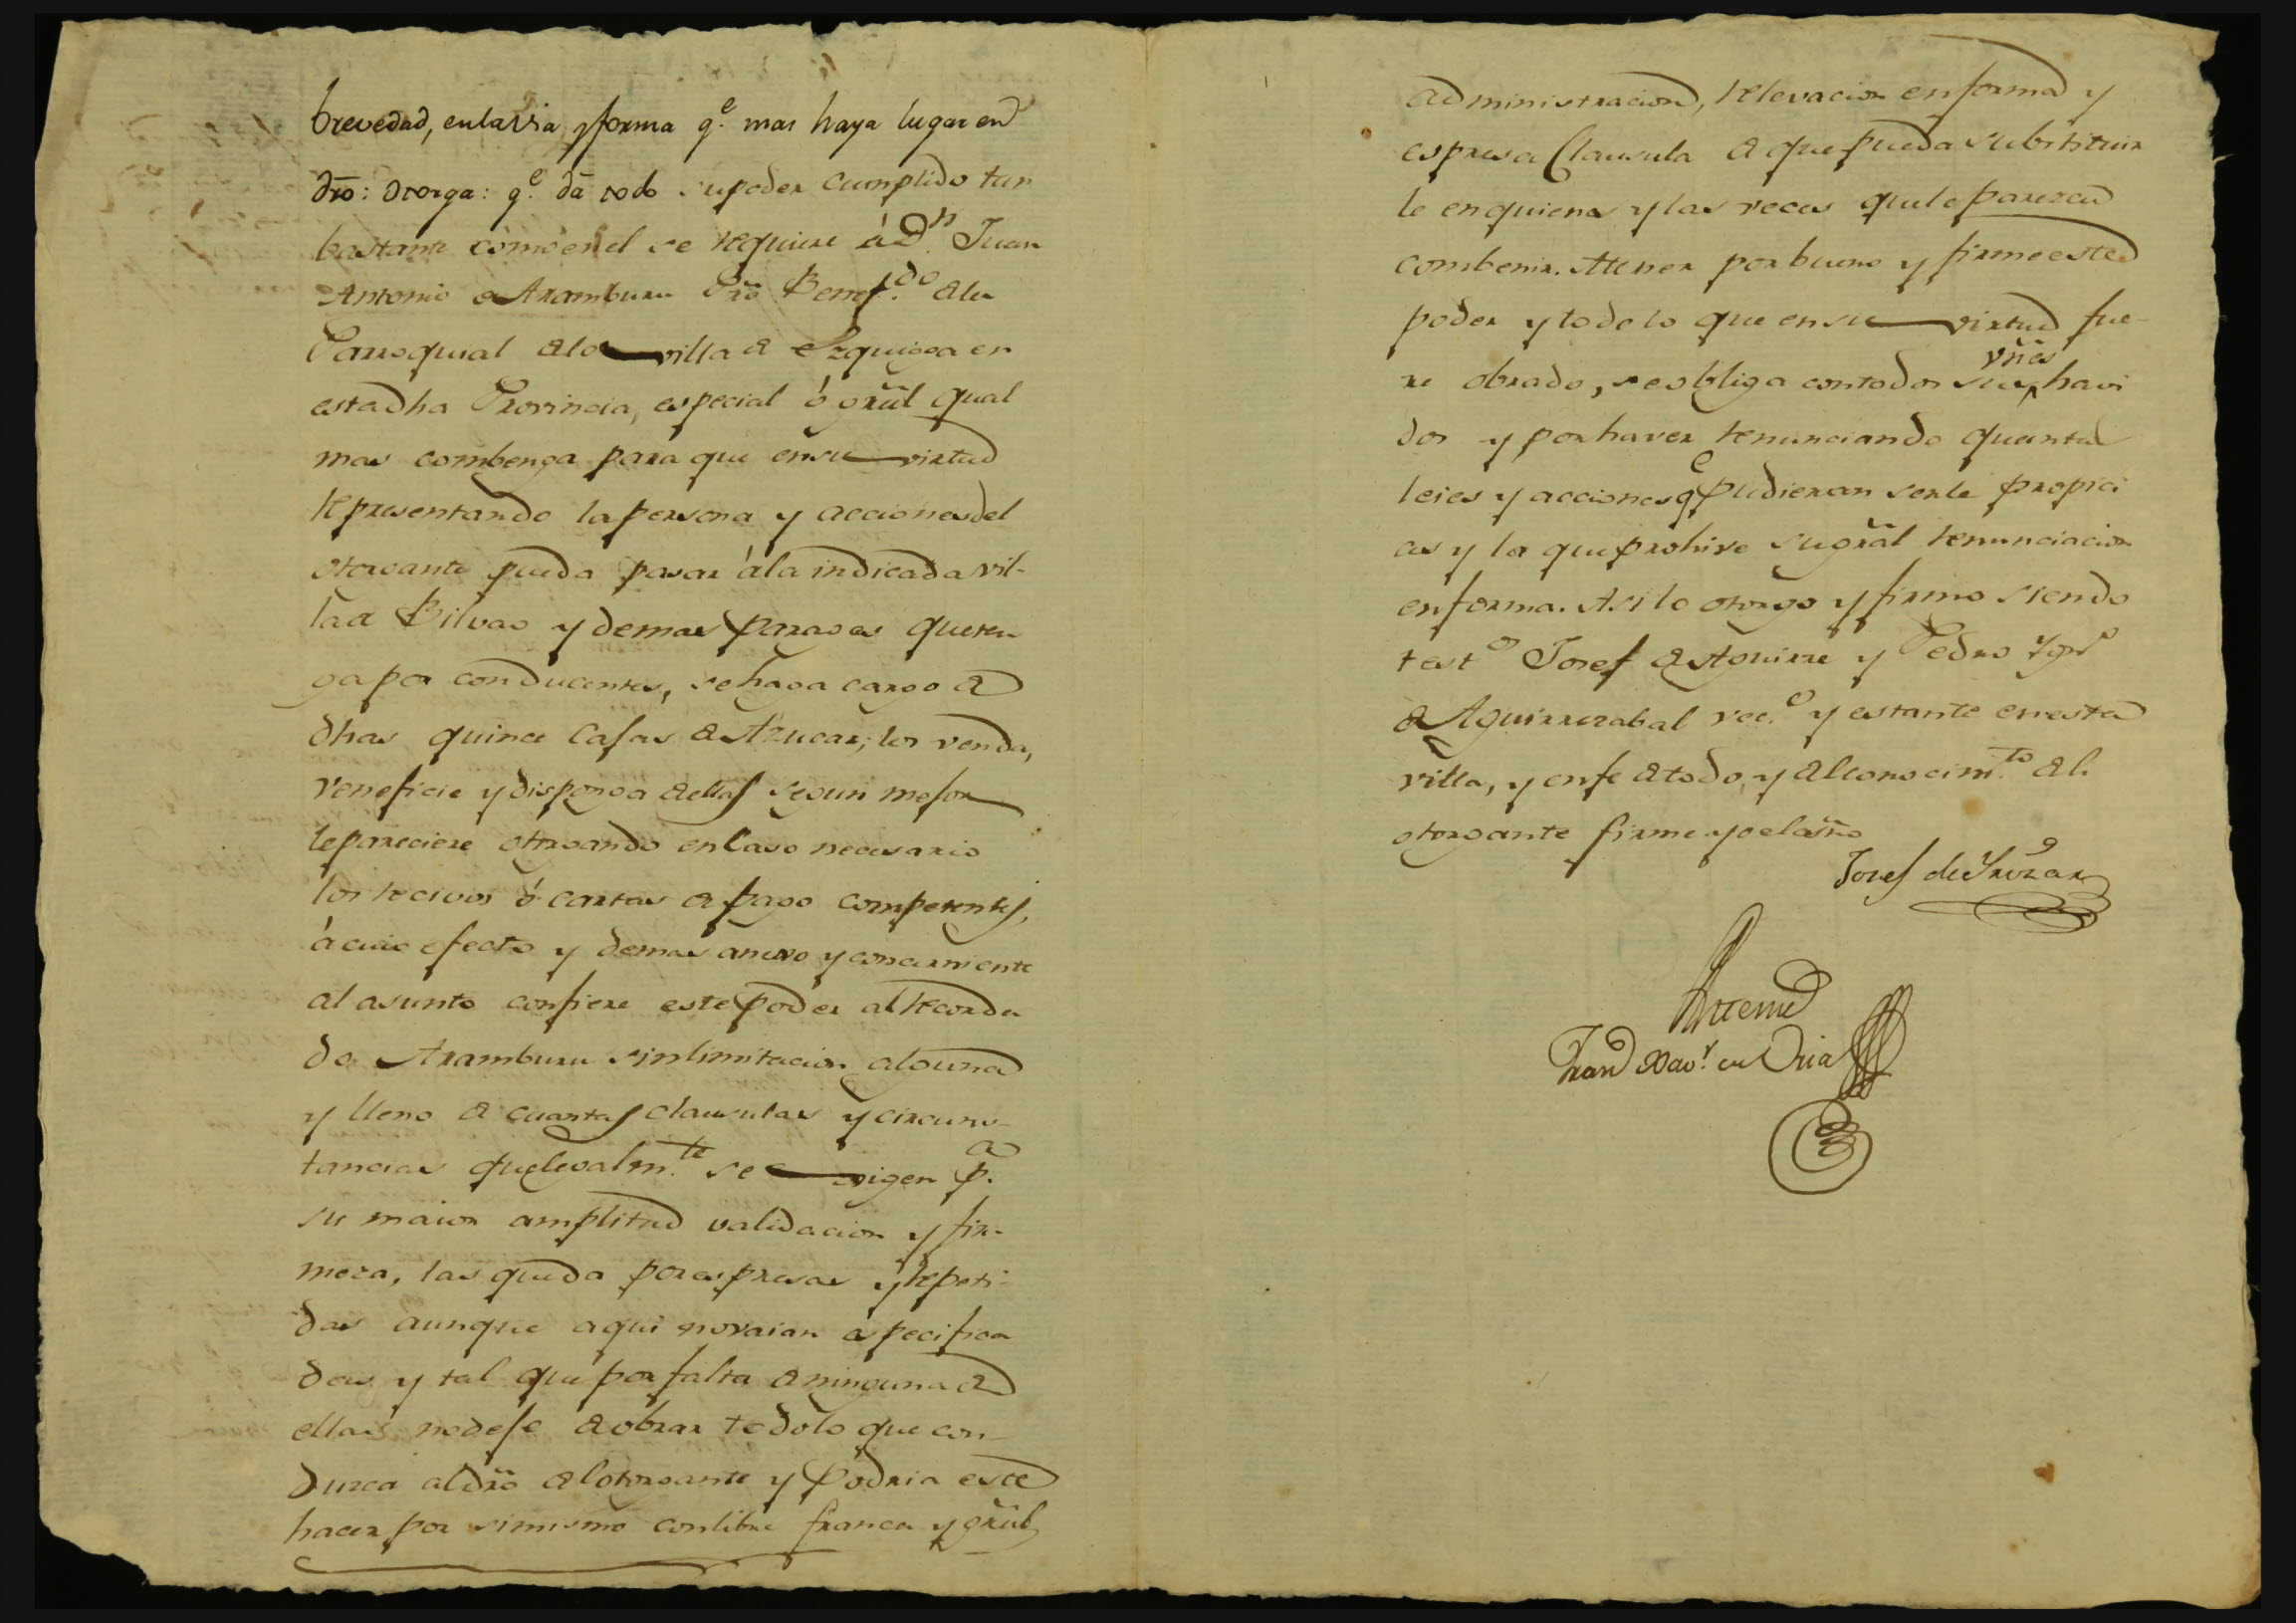 brevedad, en la via y forma q.e mas haya lugar en
dro: otorga: q.e da todo su poder cumplido tan
bastante como en el se requiere á Dn. Juan
Antonio de Aramburu Pro Benef.do de la
Parroquial de la villa de Ezquioga en
esta dha Provincia, especial ó gral qual
mas combenga para que en su virtud
representando la persona y acciones del
otorgante pueda pasar á la indicada vil-
la de Bilvao y demas parages que ten
ga por conducentes, se haga cargo de
dhas quince Cajas de Azucar; los venda,
veneficie y disponga de ellas segun mejor
le pareciere otorgando en Caso necesario
los recivos ó cartas de pago competentes,
á cuio efecto y demas anexo y concerniente
al asunto confiere este poder al recorda
do Aramburu sin limitacion alguna
y lleno de cuantas clausulas y circuns-
tancias que legalm.te se exigen p.a
su maior amplitud validacion y fir-
meza, las queda por espresas y repeti-
das aunque aqui no vaian especifica
das y tal que por falta de ninguna de
ellas no deje de obrar todo lo que con-
duzca al dro del otorgante y podria este
hacer por si mismo con libre franca y gral
administracion, relevacion en forma y
espresa Clausula de que pueda substituir
le en quienes y las veces que le parezca
combenir. Attener por bueno y firme este
poder y todo lo que en su virtud fue-
re obrado, se obliga con todos sus vnes havi
dos y por haver renunciando quanta
leies y acciones q.e pudieran serle propici
as y la que prohive su gral renunciacion
en forma. Asi lo otorgo y firmo siendo
test.os Josef de Aguirre y Pedro Ign.o
de Aguirrezabal vec.o y estante en esta
villa, y en fe de todo, y del conocim.to del
otorgante firme yo el esno
Josef de Yrizar
Antemi
Fran Xav.r de Oria